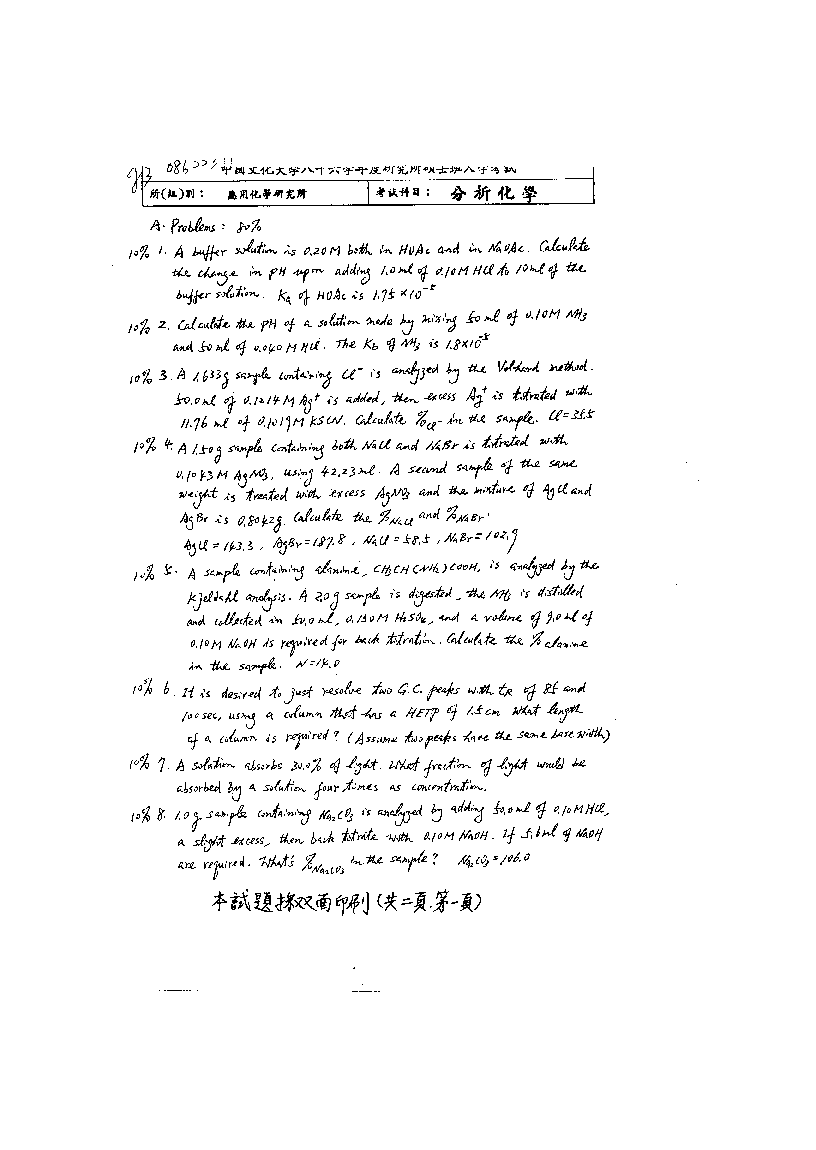 中國文化大學八十六學年度研究所碩士班入學考試
所(組)別： 應用化學研究所 考試科目： 分析化學
A. Problems: 80%
10% 1. A buffer solution is 0.20M both in HOAc and in NaOAc. Calculate
the change in pH upon adding 1.0ml of 0.10M HCl to 10ml of the
buffer solution. Ka of HOAc is 1.75×10⁻⁵
10% 2. Calculate the pH of a solution made by mixing 50ml of 0.10M NH3
and 50ml of 0.040M HCl. The Kb of NH3 is 1.8×10⁻⁵
10% 3. A 1.633g sample containing Cl⁻ is analyzed by the Volhard method.
50.0ml of 0.1214M Ag⁺ is added, then excess Ag⁺ is titrated with
11.76 ml of 0.1019M KSCN. Calculate %Cl⁻ in the sample. Cl=35.5
10% 4. A 1.50g sample containing both NaCl and NaBr is titrated with
0.1043M AgNO3, using 42.23ml. A second sample of the same
weight is treated with excess AgNO3 and the mixture of AgCl and
AgBr is 0.8042g. Calculate the %NaCl and %NaBr.
AgCl=143.3, AgBr=187.8, NaCl=58.5, NaBr=102.9
10% 5. A sample containing alanine, CH3CH(NH2)COOH, is analyzed by the
Kjeldahl analysis. A 2.0g sample is digested, the NH3 is distilled
and collected in 50.0ml, 0.150M H2SO4, and a volume of 9.0ml of
0.10M NaOH is required for back titration. Calculate the % alanine
in the sample. N=14.0
10% 6. It is desired to just resolve two G.C. peaks with tR of 85 and
100sec, using a column that has a HETP of 1.5cm What length
of a column is required? (Assume two peaks have the same base width)
10% 7. A solution absorbs 30.0% of light. What fraction of light would be
absorbed by a solution four times as concentration.
10% 8. 1.0g sample containing Na2CO3 is analyzed by adding 50.0ml of 0.10M HCl,
a slight excess, then back titrate with 0.10M NaOH. If 5.6ml of NaOH
are required. What's %Na2CO3 in the sample? Na2CO3=106.0
本試題採双面印刷(共二頁.第一頁)